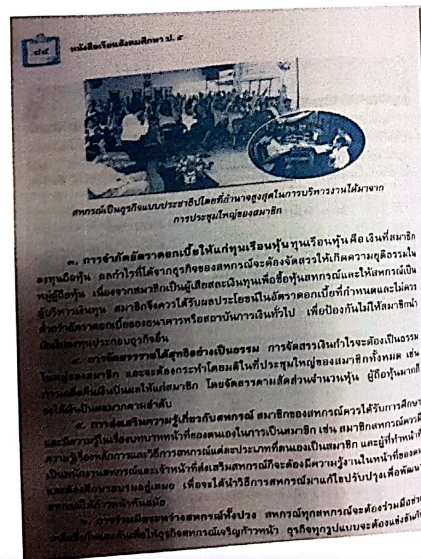 ๘๔ หนังสือเรียนสังคมศึกษา ป. ๕
สหกรณ์เป็นธุรกิจแบบประชาธิปไตยที่อำนาจสูงสุดในการบริหารงานได้มาจาก
การประชุมใหญ่ของสมาชิก
๓. การจำกัดอัตราดอกเบี้ยให้แก่ทุนเรือนหุ้น ทุนเรือนหุ้น คือ เงินที่สมาชิก
ลงทุนถือหุ้น ผลกำไรที่ได้จากธุรกิจของสหกรณ์จะต้องจัดสรรให้เกิดความยุติธรรมใน
หมู่ผู้ถือหุ้น เนื่องจากสมาชิกเป็นผู้เสียสละเงินทุนเพื่อซื้อหุ้นสหกรณ์และให้สหกรณ์เป็น
ผู้บริหารเงินทุน สมาชิกจึงควรได้รับผลประโยชน์ในอัตราดอกเบี้ยที่กำหนดและไม่ควร
ต่ำกว่าอัตราดอกเบี้ยของธนาคารหรือสถาบันการเงินทั่วไป เพื่อป้องกันไม่ให้สมาชิกนำ
เงินไปลงทุนประกอบธุรกิจอื่น
๔. การจัดสรรรายได้สุทธิอย่างเป็นธรรม การจัดสรรเงินกำไรจะต้องเป็นธรรม
ในหมู่ของสมาชิก และจะต้องกระทำโดยมติในที่ประชุมใหญ่ของสมาชิกทั้งหมด เช่น
การเฉลี่ยคืนเงินปันผลให้แก่สมาชิก โดยจัดสรรตามสัดส่วนจำนวนหุ้น ผู้ถือหุ้นมากก็
จะได้เงินปันผลมากตามลำดับ
๕. การส่งเสริมความรู้เกี่ยวกับสหกรณ์ สมาชิกของสหกรณ์ควรได้รับการศึกษา
และมีความรู้ในเรื่องบทบาทหน้าที่ของตนเองในการเป็นสมาชิก เช่น สมาชิกสหกรณ์ควรมี
ความรู้เรื่องหลักการและวิธีการสหกรณ์แต่ละประเภทที่ตนเองเป็นสมาชิก และผู้ที่ทำหน้าที่
เป็นพนักงานสหกรณ์และเจ้าหน้าที่ส่งเสริมสหกรณ์ก็จะต้องมีความรู้งานในหน้าที่ของตน
และต้องศึกษาอบรมอยู่เสมอ เพื่อจะได้นำวิธีการสหกรณ์มาแก้ไขปรับปรุงเพื่อพัฒนา
สหกรณ์ให้ก้าวหน้าทันสมัย
๖. การร่วมมือระหว่างสหกรณ์ทั้งปวง สหกรณ์ทุกสหกรณ์จะต้องร่วมมือช่วย
เหลือซึ่งกันและกันเพื่อให้ธุรกิจสหกรณ์เจริญก้าวหน้า ธุรกิจทุกรูปแบบจะต้องแข่งขันกัน